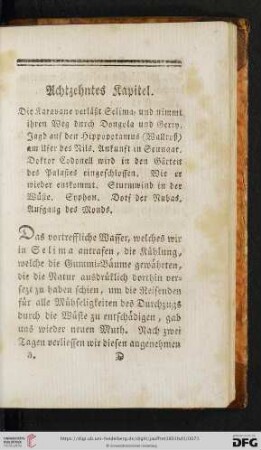 Achtzehntes Kapitel.
Die Karavane verläßt Selima, und nimmt
ihren Weg durch Dongola und Gerry.
Jagd auf den Hippopotamus (Wallroß)
am Ufer des Nils. Ankunft in Sennaar.
Doktor Codonell wird in den Gärten
des Palastes eingeschlossen. Wie er
wieder entkommt. Sturmwind in der
Wüste. Syphon. Dorf der Nubas.
Aufgang des Monds.
Das vortreffliche Wasser, welches wir
in Selima antrafen, die Kühlung,
welche die Gummi-Bäume gewährten,
die die Natur ausdrüklich dorthin ver-
sezt zu haben schien, um die Reisenden
für alle Mühseligkeiten des Durchzugs
durch die Wüste zu entschädigen, gab
uns wieder neuen Muth. Nach zwei
Tagen verliessen wir diesen angenehmen
D
UNIVERSITÄTS-
BIBLIOTHEK
HEIDELBERG
DFG